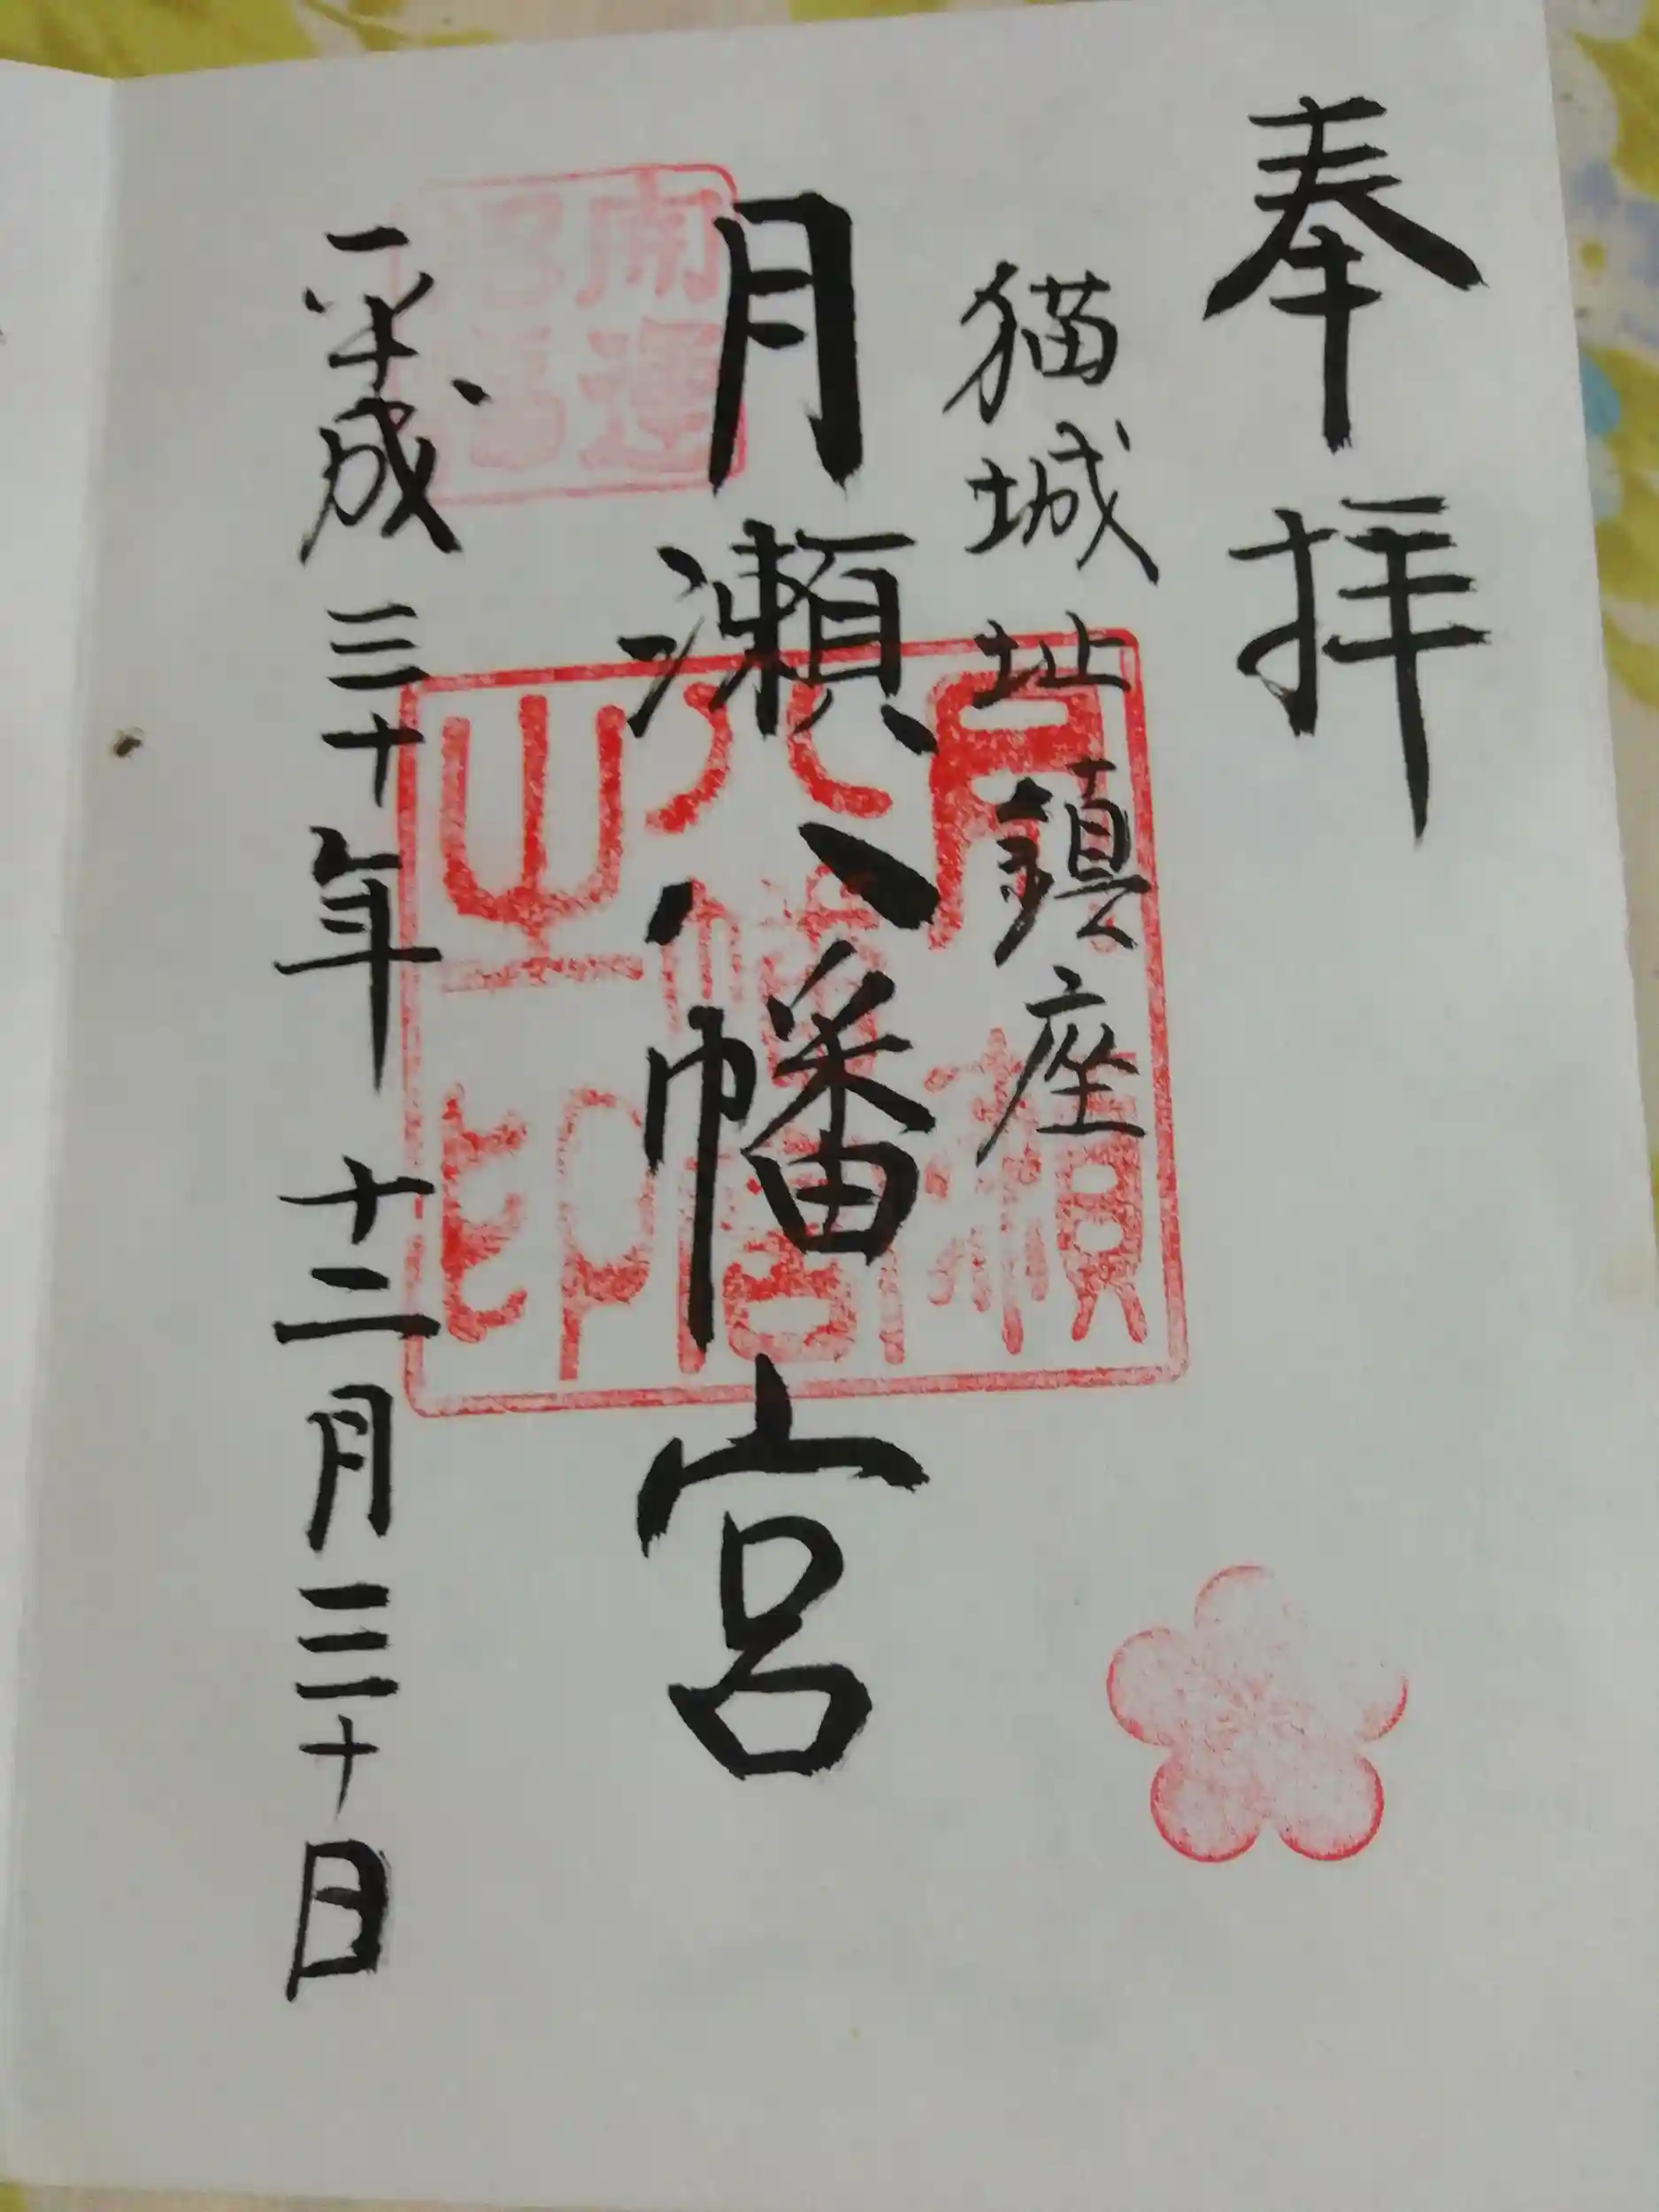 奉拝
猫城址鎮座
月瀬八幡宮
平成三十年十二月三十日
開運招福
月瀬八幡宮之印